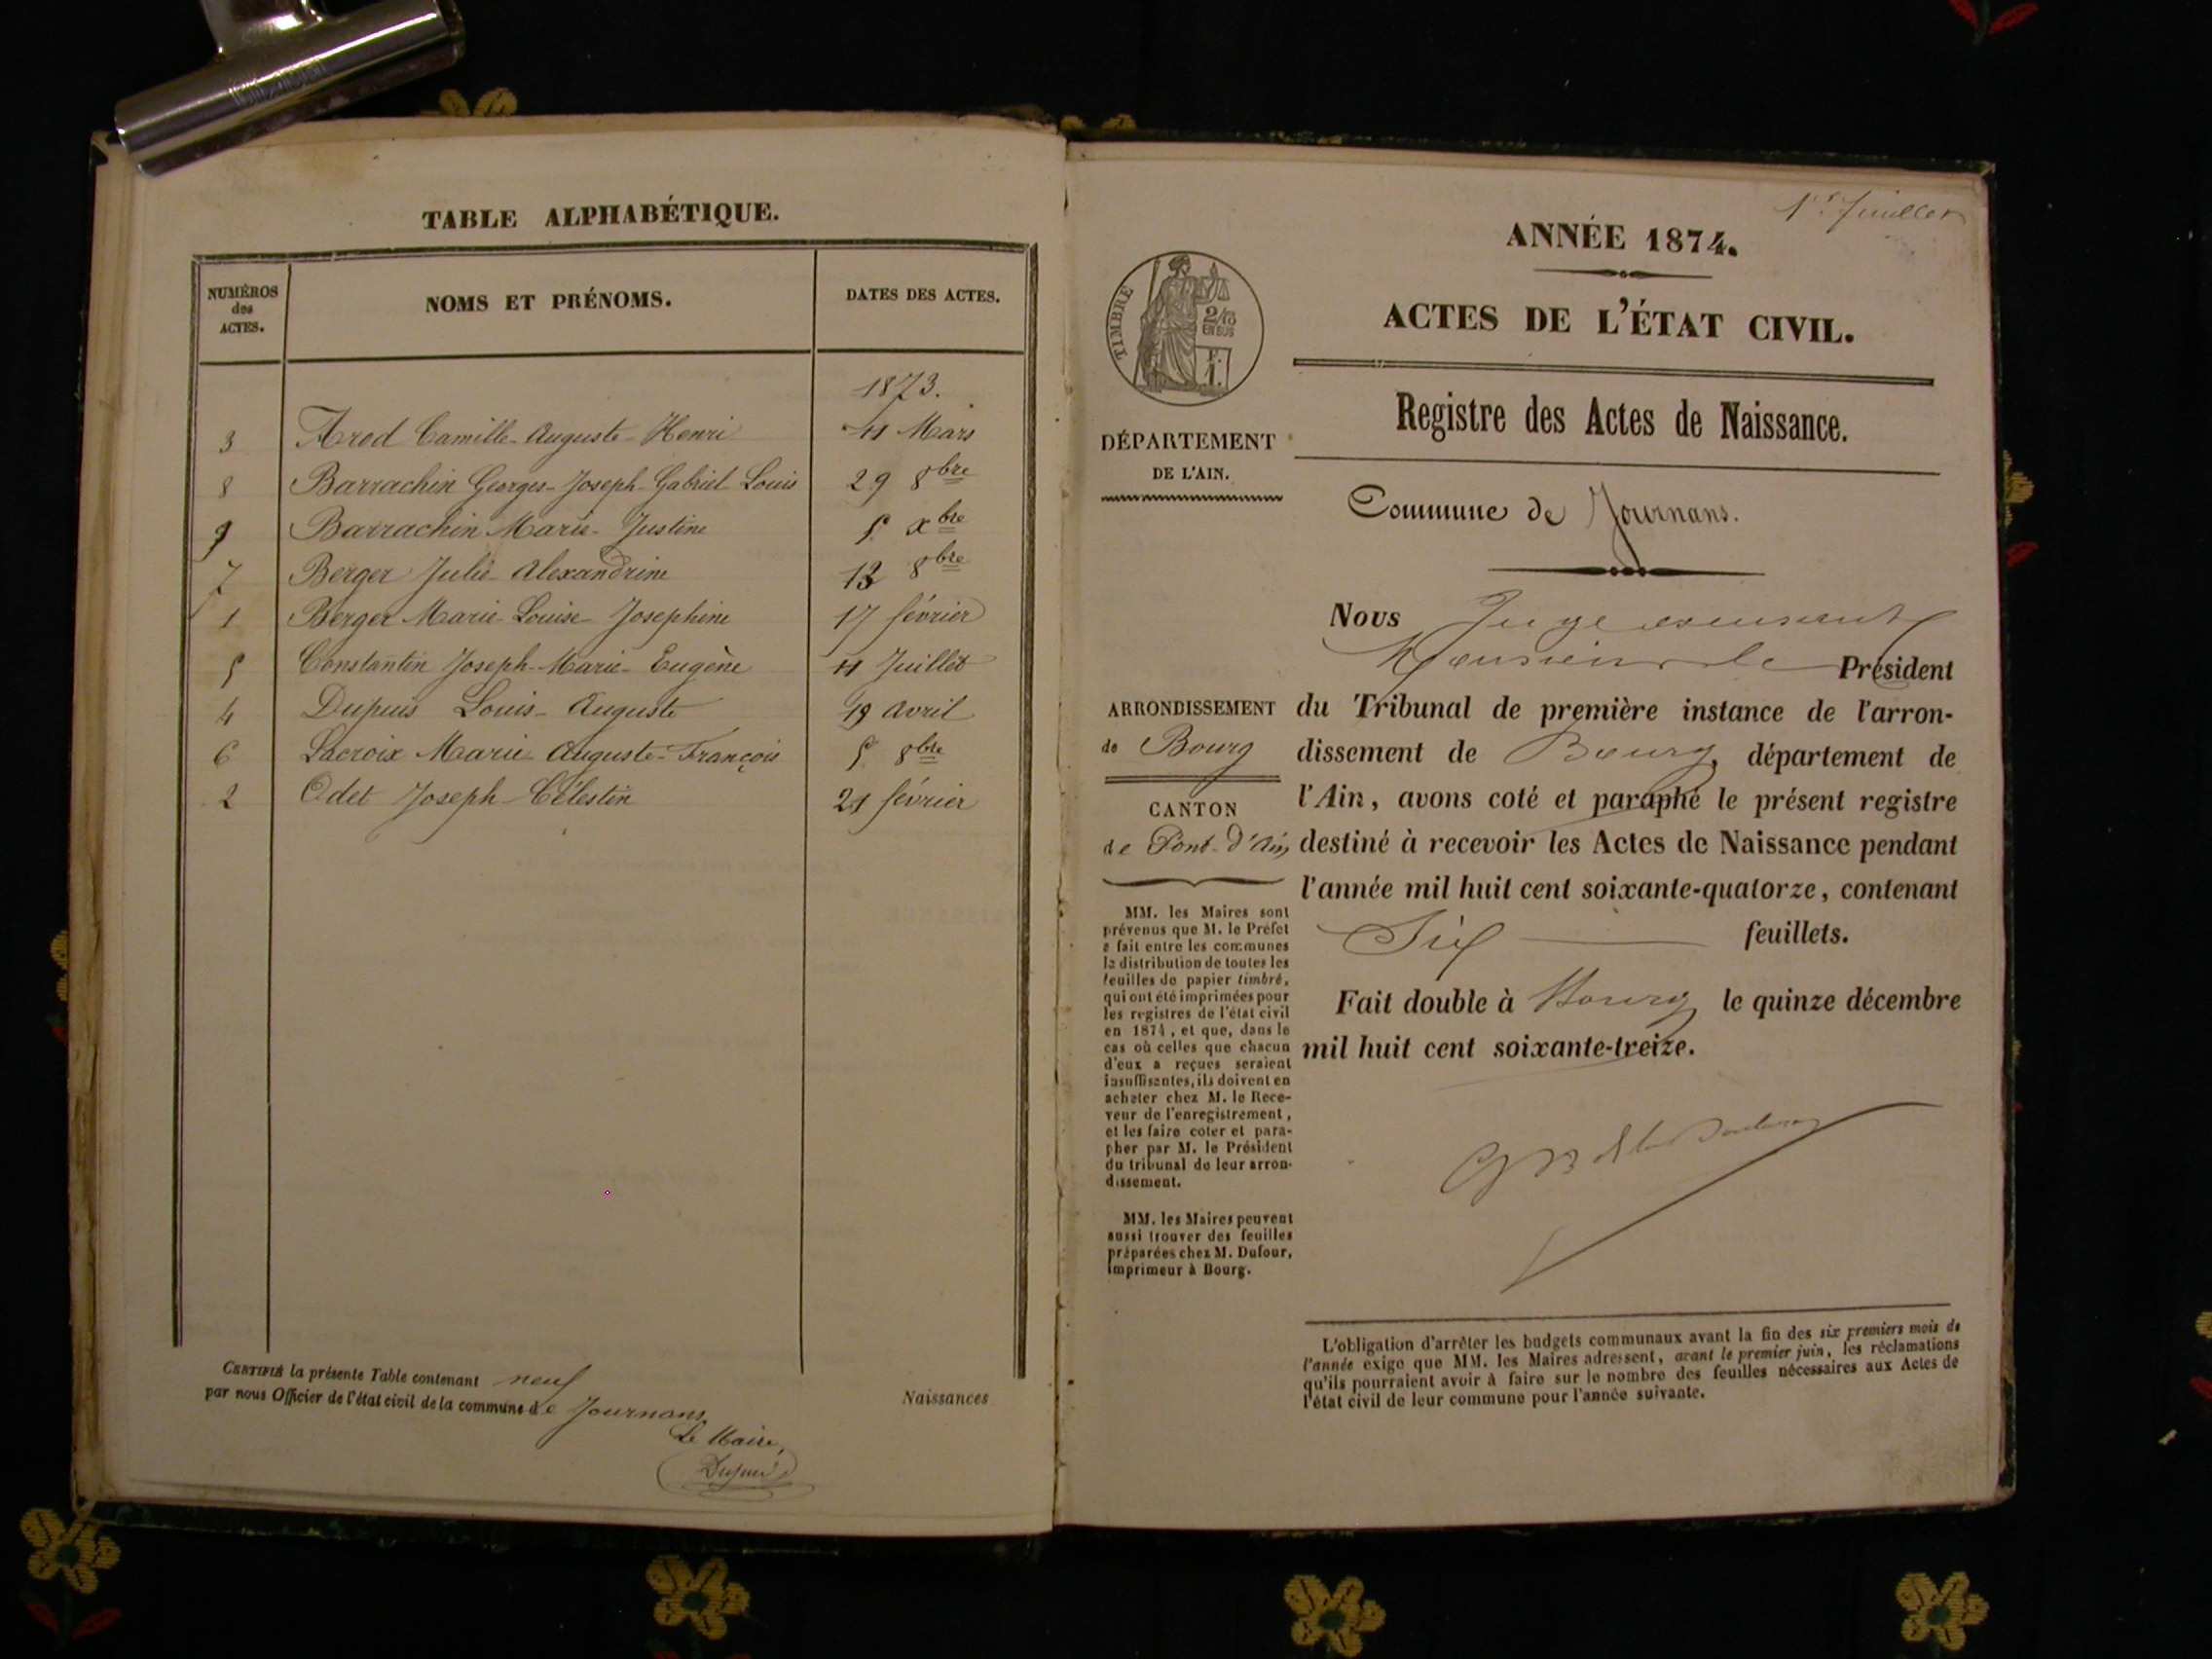 TABLE ALPHABÉTIQUE.
NUMÉROS
des
ACTES.
NOMS ET PRÉNOMS.
DATES DES ACTES.
1873.
3 Arod Camille-Auguste-Henri 11 Mars
8 Barrachin Georges-Joseph-Gabriel-Louis 29 8bre
9 Barrachin Marie-Justine 5 xbre
7 Berger Julie-Alexandrine 13 8bre
1 Berger Marie-Louise-Josephine 17 février
5 Constantin Joseph-Marie-Eugène 11 Juillet
4 Dupuis Louis-Auguste 19 avril
6 Lacroix Marie-Auguste-François 5 8bre
2 Odet Joseph-Célestin 21 février
CERTIFIÉ la présente Table contenant neuf
par nous Officier de l'état civil de la commune de Journans
Le Maire,
Dupuis
Naissances
1er. feuillet
ANNÉE 1874.
ACTES DE L'ÉTAT CIVIL.
TIMBRE
2/10
EN SUS
1F.
Registre des Actes de Naissance.
DÉPARTEMENT
DE L'AIN.
Commune de Journans.
Nous Juge
Monsieur le Président
ARRONDISSEMENT
de Bourg
CANTON
de Pont-d'Ain
du Tribunal de première instance de l'arron-
dissement de Bourg, département de
l'Ain, avons coté et paraphé le présent registre
destiné à recevoir les Actes de Naissance pendant
l'année mil huit cent soixante-quatorze, contenant
Six feuillets.
Fait double à Bourg le quinze décembre
mil huit cent soixante-treize.
MM. les Maires sont
prévenus que M. le Préfet
a fait entre les communes
la distribution de toutes les
feuilles de papier timbré,
qui ont été imprimées pour
les registres de l'état civil
en 1874, et que, dans le
cas où celles que chacun
d'eux a reçues seraient
insuffisantes, ils doivent en
acheter chez M. le Rece-
veur de l'enregistrement,
et les faire coter et para-
pher par M. le Président
du tribunal de leur arron-
dissement.
MM. les Maires peuvent
aussi trouver des feuilles
préparées chez M. Dufour,
imprimeur à Bourg.
L'obligation d'arrêter les budgets communaux avant la fin des six premiers mois de
l'année exige que MM. les Maires adressent, avant le premier juin, les réclamations
qu'ils pourraient avoir à faire sur le nombre des feuilles nécessaires aux Actes de
l'état civil de leur commune pour l'année suivante.